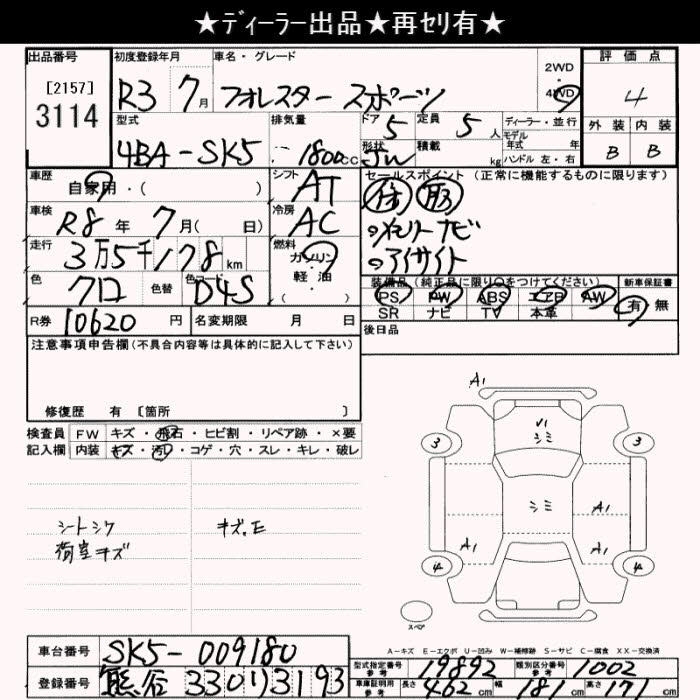 ★ディーラー出品★再セリ有★
出品番号
[2157]
3114
初度登録年月
R3 7月
車名・グレード
フォレスター スポーツ
2WD
・
4WD
評価点
4
外装 内装
B B
型式
4BA-SK5
排気量
1800cc
ドア
5
定員
5人
形状
積載
kg
ディーラー・並行
モデル
年式 年
ハンドル 左・右
車歴
自家用・( )
シフト
AT
車検
R8年 7月( 日)
冷房
AC
走行
3万5千178km
燃料
ガソリン
・
軽・油
( )
色
クロ
色替
色コード
D4S
セールスポイント (正常に機能するものに限ります)
ナビ
アイサイト
装備品(純正品に限り○をつけてください)
PS PW ABS エアB AW
SR ナビ TV 本革
新車保証書
有 無
R券
10620円
名変期限 月 日
後日品
注意事項申告欄(不具合内容等は具体的に記入して下さい)
修復歴 有 [箇所 ]
検査員
記入欄
FW キズ・飛石・ヒビ割・リペア跡・×要
内装 キズ・汚レ・コゲ・穴・スレ・キレ・破レ
シートシワ
荷室キズ
キズ.E
A1
V1
シミ
3
3
シミ
A1
A1
A1
4
4
スペア
A-キズ E-エクボ U-凹み W-補修跡 S-サビ C-腐食 XX-交換済
車台番号
SK5-009180
登録番号
熊谷 330 ﾘ 3193
型式指定番号
参考
19892
類別区分番号
参考
1002
車庫証明用
参考
長さ 462cm 幅 181cm 高さ 171cm